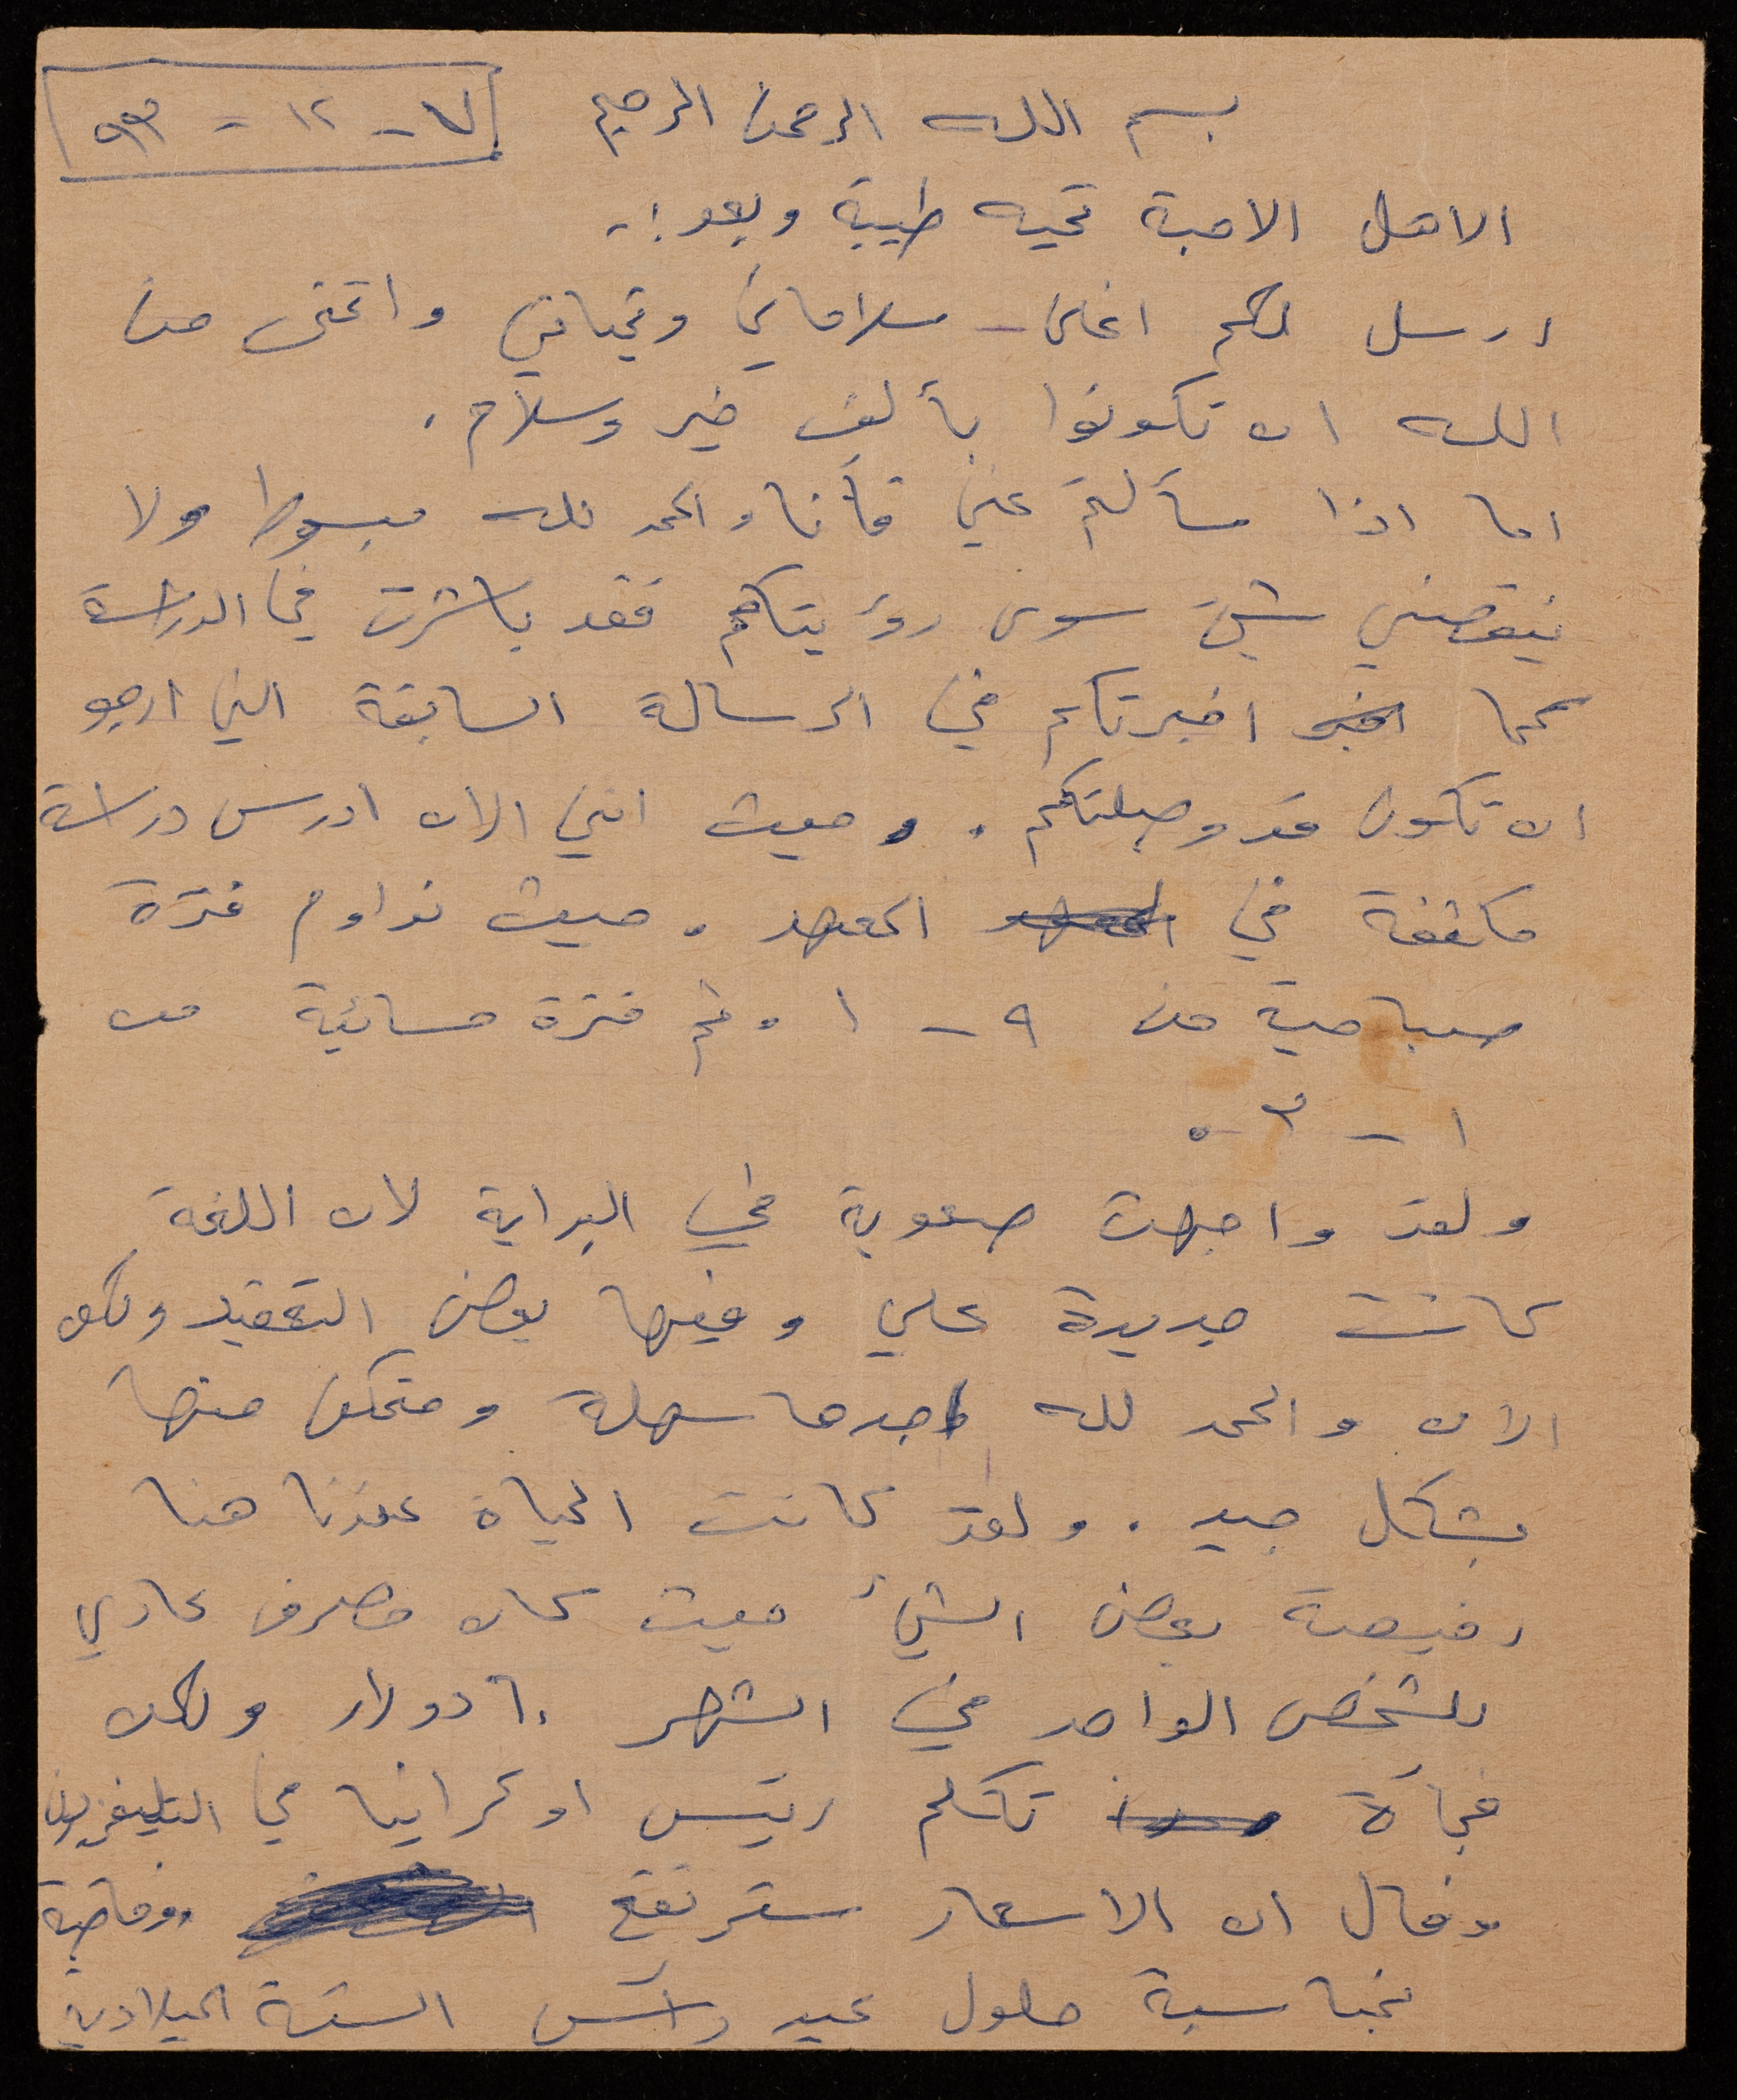 بسم الله الرحمن الرحيم ٧ - ١٢ - ٩٣
الاهل الاحبة تحيه طيبة وبعد :-
ارسل لكم اغلى سلاماتي وتحياتي واتمنى من
الله ان تكونوا بألف خير وسلام .
اما اذا سألتم عني فأنا والحمد لله مبسوط ولا
ينقصني شئ سوى رؤيتكم فقد باشرت في الدراسة
كما اخبرتكم في الرسالة السابقة التي ارجو
ان تكون قد وصلتكم . وحيث انني الان ادرس دراسة
مكثفة في المعهد . حيث نداوم فترة
صباحية من ٩ - ١ . ثم فترة مسائية من
١ - ٣ .
ولقد واجهت صعوبة في البداية لان اللغة
كانت جديدة علي وفيها بعض التعقيد ولكن
الان والحمد لله اجدها سهلة ومتمكن منها
بشكل جيد . ولقد كانت الحياة عندنا هنا
رخيصة بعض الشئ حيث كان مصرف عادي
للشخص الواحد في الشهر ٦٠ دولار ولكن
فجأة تكلم رئيس اوكرانيا في التليفزيون
وقال ان الاسعار سترتفع وخاصة
بمناسبة حلول عيد رأس السنة الميلادية